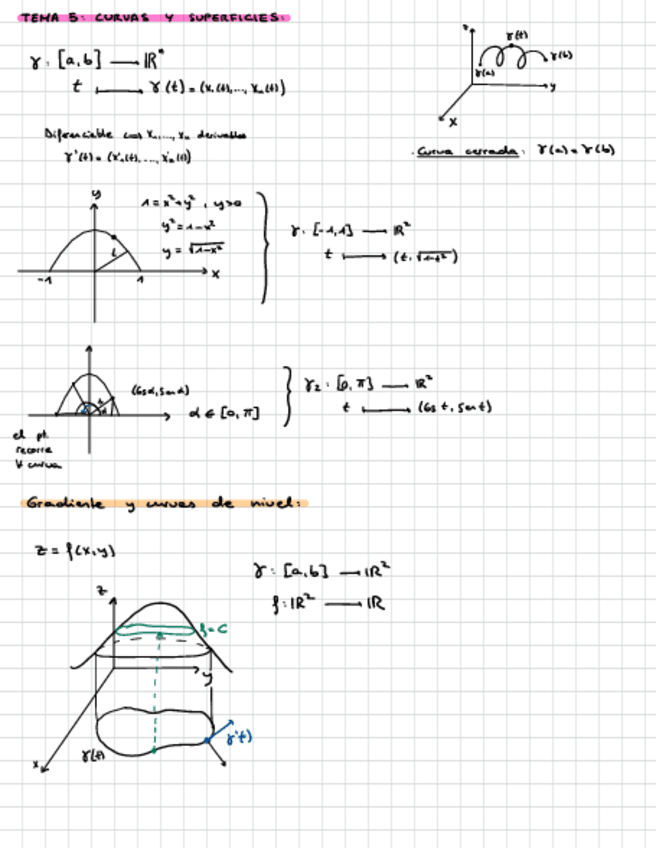 TEMA 5: CURVAS Y SUPERFICIES:
γ: [a,b] → ℝⁿ
t ↦ γ(t) = (x₁(t),..., xₙ(t))
z
γ(t)
γ(a)
γ(b)
y
x
Diferenciable con x₁,..., xₙ derivables
γ'(t) = (x₁'(t),..., xₙ'(t))
Curva cerrada: γ(a) = γ(b)
y
1 = x² + y², y>0
y² = 1-x²
y = √1-x²
-1
1
x
γ: [-1,1] → ℝ²
t ↦ (t, √1-t²)
(Cos α, Sen α)
α ∈ [0, π]
γ₂: [0, π] → ℝ²
t ↦ (Cos t, Sen t)
el pt.
recorre
∀ curva
Gradiente y curvas de nivel:
z = f(x,y)
γ: [a,b] → ℝ²
f: ℝ² → ℝ
z
f=C
y
γ(t)
γ'(t)
x